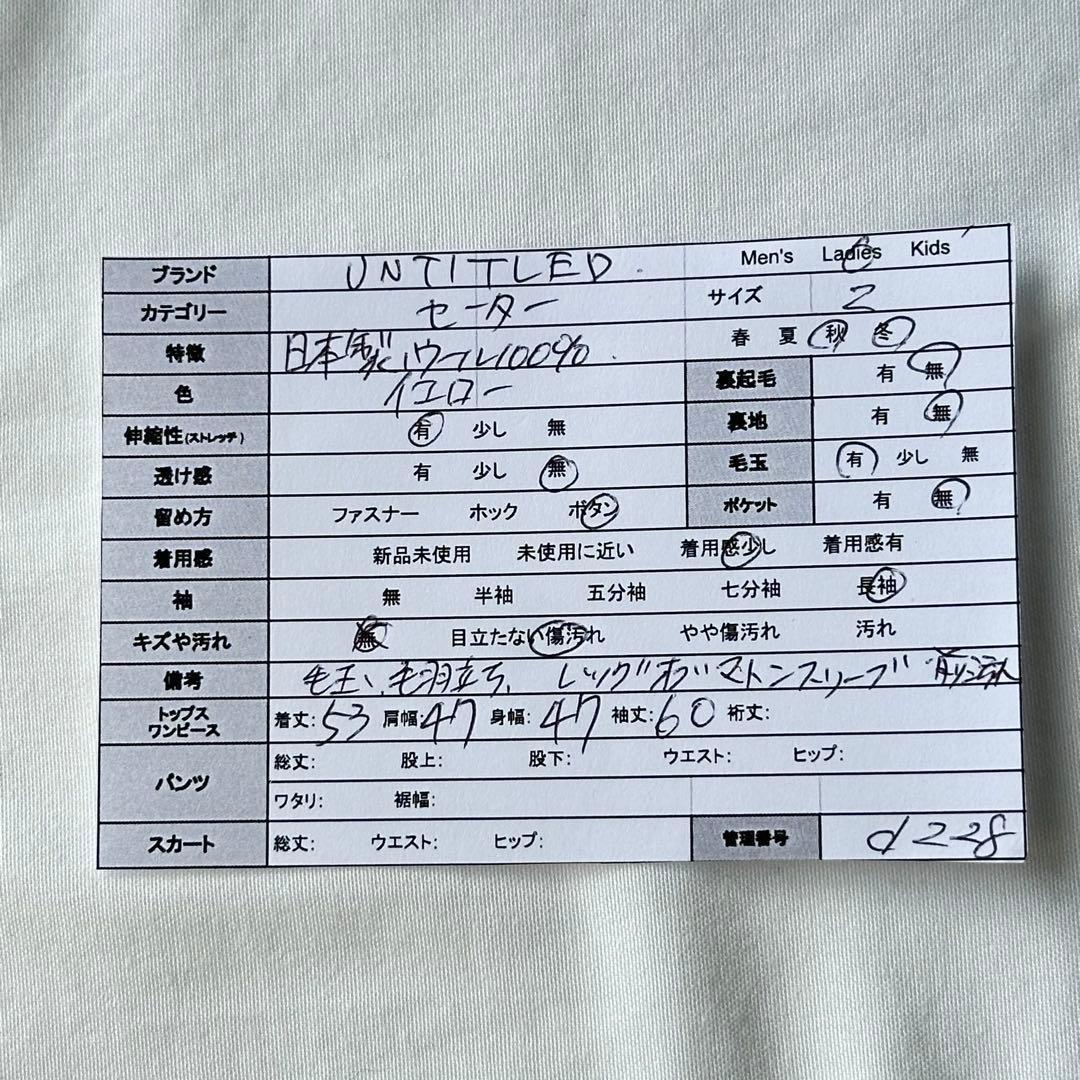 ブランド UNTITLED. Men's Ladies Kids
カテゴリー セーター サイズ 2
特徴 日本製、ウール100% 春 夏 秋 冬
色 イエロー 裏起毛 有 無
伸縮性(ストレッチ) 有 少し 無 裏地 有 無
透け感 有 少し 無 毛玉 有 少し 無
留め方 ファスナー ホック ボタン ポケット 有 無
着用感 新品未使用 未使用に近い 着用感少し 着用感有
袖 無 半袖 五分袖 七分袖 長袖
キズや汚れ 無 目立たない傷汚れ やや傷汚れ 汚れ
備考 毛玉、毛羽立ち、
トップス ワンピース 着丈:53 肩幅:47 身幅:47 袖丈:60 裄丈:
パンツ 総丈: 股上: 股下: ウエスト: ヒップ:
ワタリ: 裾幅:
スカート 総丈: ウエスト: ヒップ: 管理番号 d228